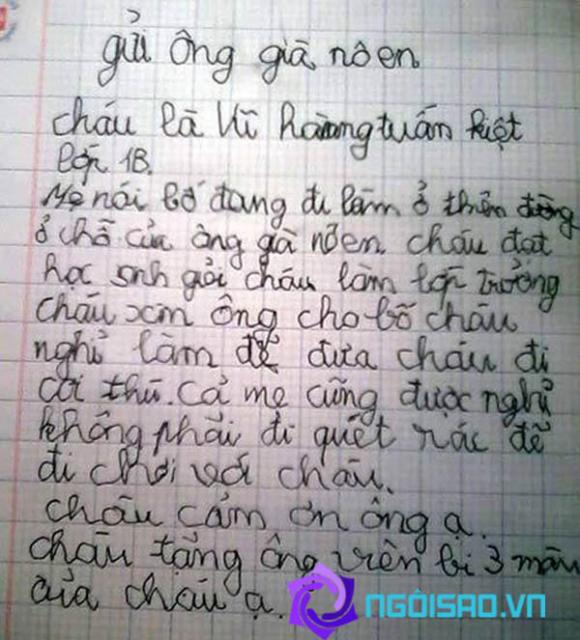 gửi ông già nô en
cháu là Vĩ hoàng tuấn kiệt
lớp 1B.
Mẹ nói bố đang đi làm ở thiên đường
ở chỗ của ông già nô en. cháu đạt
học sinh giỏi cháu làm lớp trưởng
cháu xin ông cho bố cháu
nghỉ làm để đưa cháu đi
coi thú. cả mẹ cũng được nghỉ
không phải đi quét rác để
đi chơi với cháu.
cháu cảm ơn ông ạ.
cháu tặng ông viên bi 3 màu
của cháu ạ.
NGÔISAO.VN